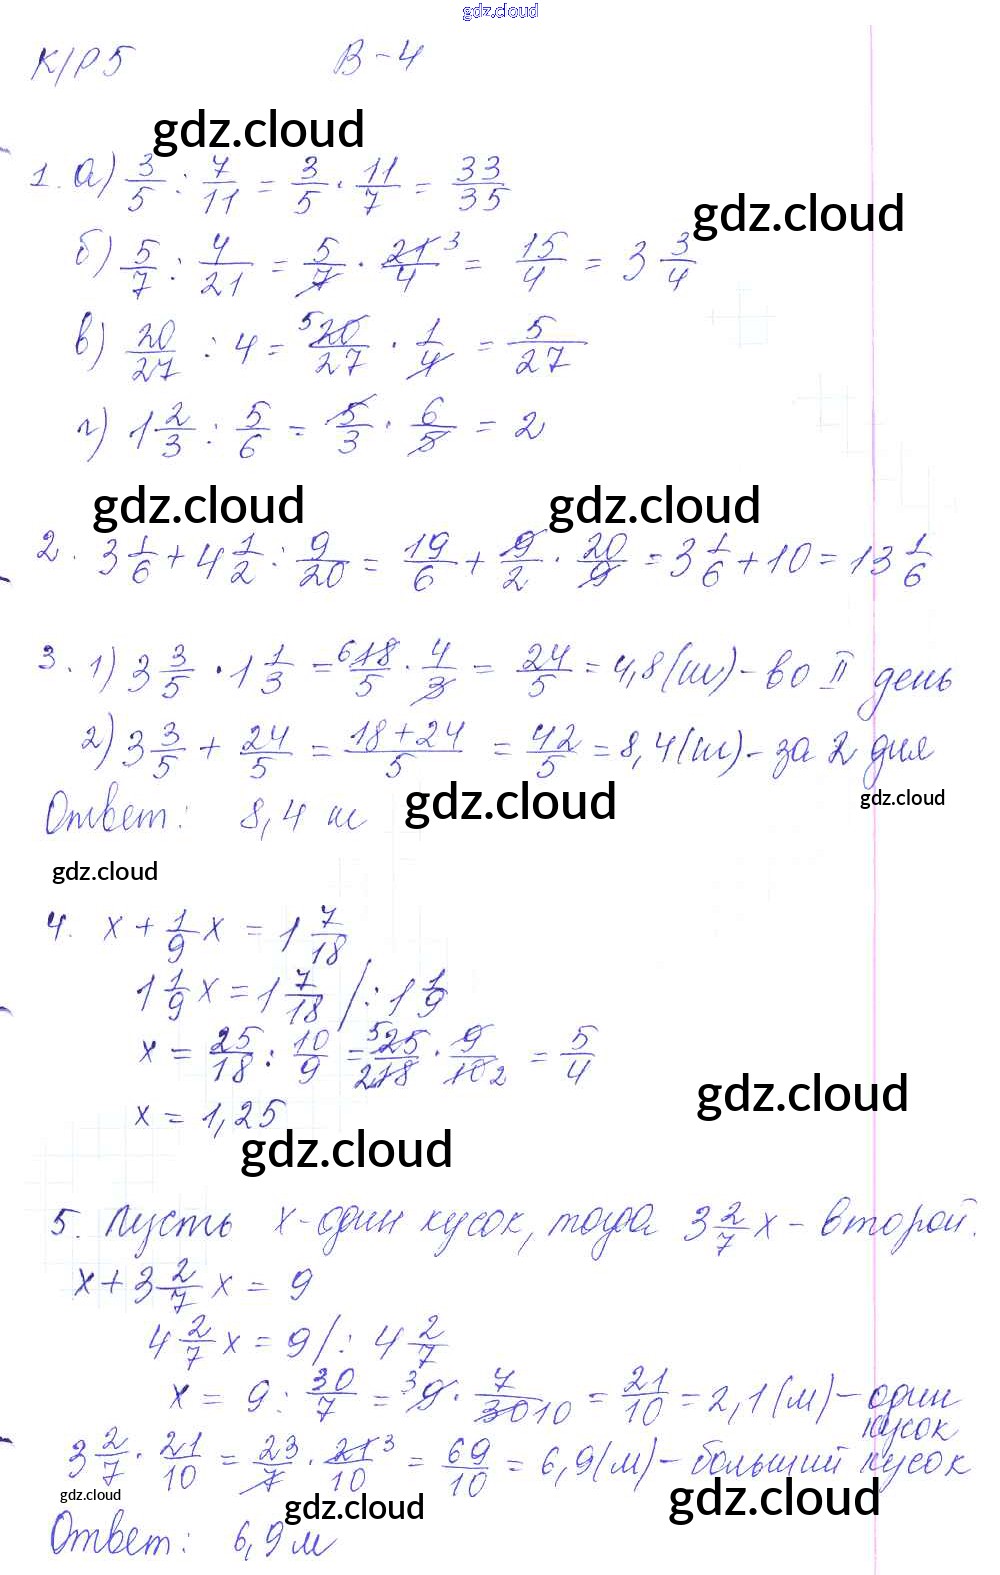 gdz.cloud
К/Р 5 В-4
gdz.cloud
1. а) 3/5 : 7/11 = 3/5 · 11/7 = 33/35
gdz.cloud
б) 5/7 : 4/21 = 5/7 · 21/4 3 = 15/4 = 3 3/4
в) 20/27 : 4 = 5 20/27 · 1/4 = 5/27
г) 1 2/3 : 5/6 = 5/3 · 6/5 = 2
gdz.cloud gdz.cloud
2. 3 1/6 + 4 1/2 : 9/20 = 19/6 + 9/2 · 20/9 = 3 1/6 + 10 = 13 1/6
3. 1) 3 3/5 · 1 1/3 = 6 18/5 · 4/3 = 24/5 = 4,8 (ш) - во II день
2) 3 3/5 + 24/5 = 18+24/5 = 42/5 = 8,4 (ш) - за 2 дня
Ответ: 8,4 ш gdz.cloud gdz.cloud
gdz.cloud
4. x + 1/9 x = 1 7/18
1 1/9 x = 1 7/18 /: 1 1/9
x = 25/18 : 10/9 = 5 25/2 18 · 9/10 2 = 5/4
gdz.cloud
x = 1,25
gdz.cloud
5. Пусть x - один кусок, тогда 3 2/7 x - второй.
x + 3 2/7 x = 9
4 2/7 x = 9 /: 4 2/7
x = 9 : 30/7 = 3 9 · 7/30 10 = 21/10 = 2,1 (м) - один
кусок
3 2/7 · 21/10 = 23/7 · 21 3/10 = 69/10 = 6,9 (м) - больший кусок
gdz.cloud gdz.cloud gdz.cloud
Ответ: 6,9 м